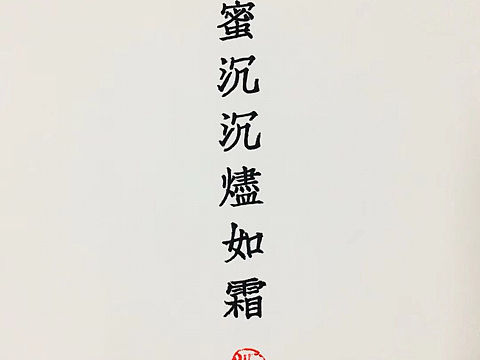 蜜沉沉燼如霜